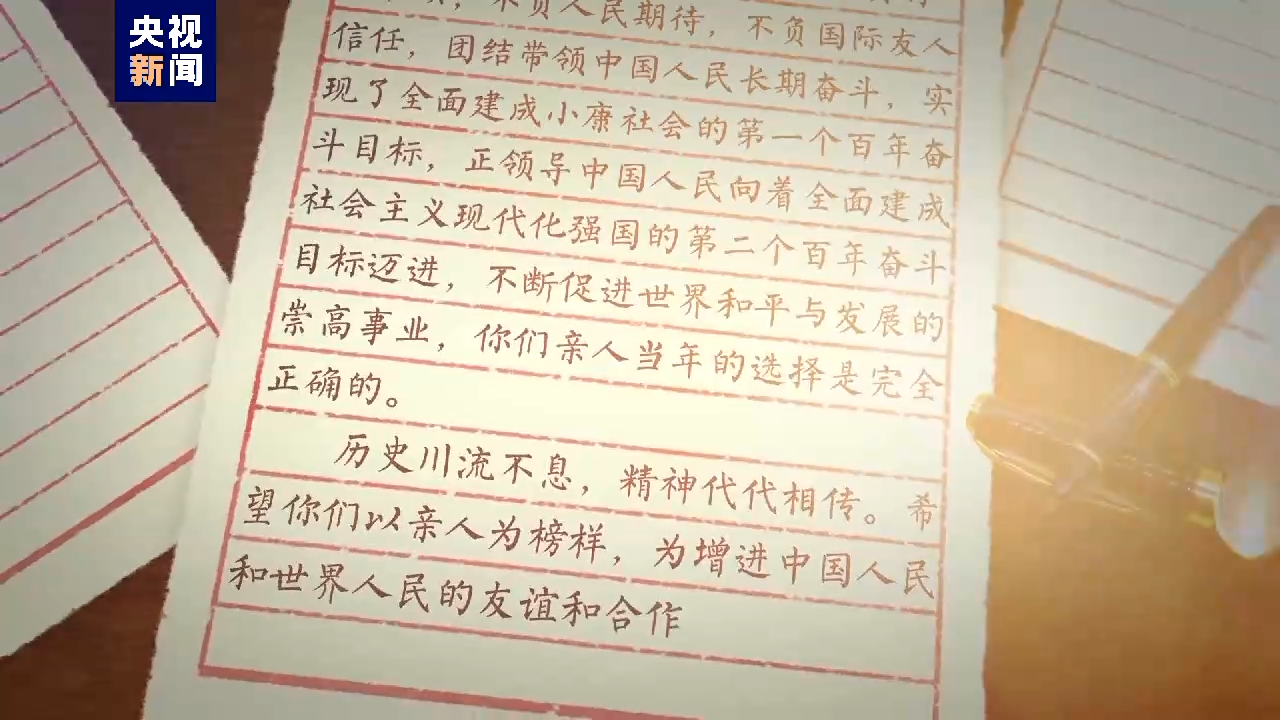 央视
新闻
不负人民期待，不负国际友人
信任，团结带领中国人民长期奋斗，实
现了全面建成小康社会的第一个百年奋
斗目标，正领导中国人民向着全面建成
社会主义现代化强国的第二个百年奋斗
目标迈进，不断促进世界和平与发展的
崇高事业，你们亲人当年的选择是完全
正确的。
历史川流不息，精神代代相传。希
望你们以亲人为榜样，为增进中国人民
和世界人民的友谊和合作